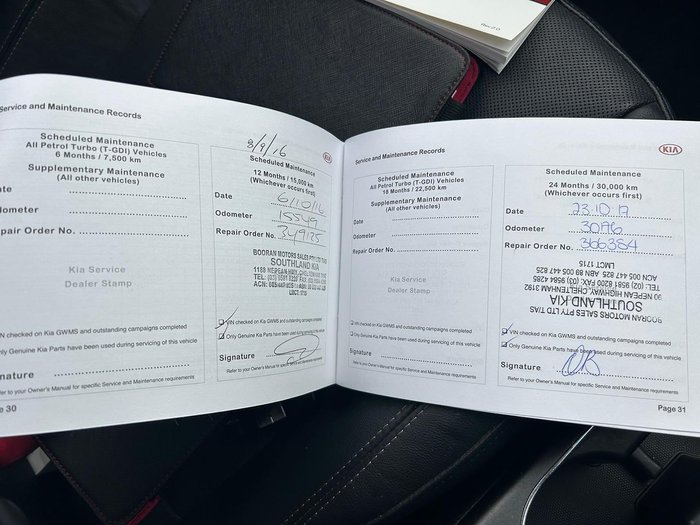 Rev:2.0
Service and Maintenance Records
Scheduled Maintenance
All Petrol Turbo (T-GDI) Vehicles
6 Months / 7,500 km
Supplementary Maintenance
(All other vehicles)
ate
dometer
Repair Order No.
Kia Service
Dealer Stamp
VIN checked on Kia GWMS and outstanding campaigns completed
Only Genuine Kia Parts have been used during servicing of this vehicle
nature
efer to your Owner's Manual for specific Service and Maintenance requirements
e 30
8/9/16
KIA
Scheduled Maintenance
12 Months / 15,000 km
(Whichever occurs first)
Date 6/10/16
Odometer 15549
Repair Order No. 349125
BOORAN MOTORS SALES PTY LTD T/AS
SOUTHLAND KIA
NEPEAN HWY, CHELTENHAM
LMCT: 1715
VIN checked on Kia GWMS and outstanding campaigns completed
Only Genuine Kia Parts have been used during servicing of this vehicle
Signature
Refer to your Owner's Manual for specific Service and Maintenance requirements
Service and Maintenance Records
Scheduled Maintenance
All Petrol Turbo (T-GDI) Vehicles
18 Months / 22,500 km
Supplementary Maintenance
(All other vehicles)
Date
Odometer
Repair Order No.
Kia Service
Dealer Stamp
VIN checked on Kia GWMS and outstanding campaigns completed
Only Genuine Kia Parts have been used during servicing of this vehicle
Signature
Refer to your Owner's Manual for specific Service and Maintenance requirements
KIA
Scheduled Maintenance
24 Months / 30,000 km
(Whichever occurs first)
Date 23.10.17
Odometer
Repair Order No. 366384
BOORAN MOTORS SALES PTY LTD T/AS
SOUTHLAND KIA
NEPEAN HIGHWAY, CHELTENHAM 3192
TEL: 9581 8200 FAX: (03) 9584 4295
ACN 005 447 825 ABN 88 005 447 825
LMCT 1715
VIN checked on Kia GWMS and outstanding campaigns completed
Only Genuine Kia Parts have been used during servicing of this vehicle
Signature
Refer to your Owner's Manual for specific Service and Maintenance requirements
Page 31